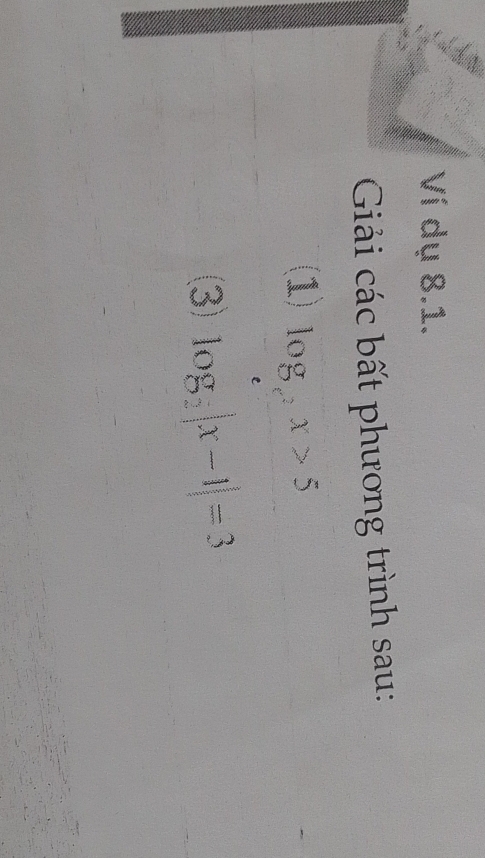 Ví dụ 8.1.
Giải các bất phương trình sau:
(1) log x > 5
(3) log₂|x − 1| = 3